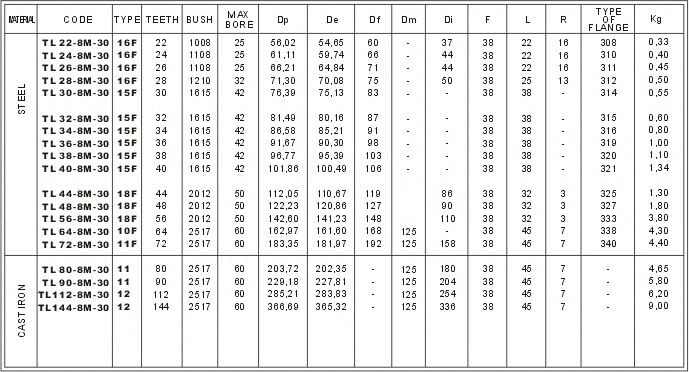 MATERIAL CODE TYPE TEETH BUSH MAX BORE Dp De Df Dm Di F L R TYPE OF FLANGE Kg
STEEL
TL 22-8M-30 16F 22 1008 25 56,02 54,65 60 - 37 38 22 16 308 0,33
TL 24-8M-30 16F 24 1108 25 61,11 59,74 66 - 44 38 22 16 310 0,40
TL 26-8M-30 16F 26 1108 25 66,21 64,84 71 - 44 38 22 16 311 0,45
TL 28-8M-30 16F 28 1210 32 71,30 70,08 75 - 50 38 25 13 312 0,50
TL 30-8M-30 15F 30 1615 42 76,39 75,13 83 - - 38 38 - 314 0,55
TL 32-8M-30 15F 32 1615 42 81,49 80,16 87 - - 38 38 - 315 0,60
TL 34-8M-30 15F 34 1615 42 86,58 85,21 91 - - 38 38 - 316 0,80
TL 36-8M-30 15F 36 1615 42 91,67 90,30 98 - - 38 38 - 319 1,00
TL 38-8M-30 15F 38 1615 42 96,77 95,39 103 - - 38 38 - 320 1,10
TL 40-8M-30 15F 40 1615 42 101,86 100,49 106 - - 38 38 - 321 1,34
TL 44-8M-30 18F 44 2012 50 112,05 110,67 119 86 38 32 3 325 1,30
TL 48-8M-30 18F 48 2012 50 122,23 120,86 127 90 38 32 3 327 1,80
TL 56-8M-30 18F 56 2012 50 142,60 141,23 148 110 38 32 3 333 3,80
TL 64-8M-30 10F 64 2517 60 162,97 161,60 168 125 - 38 45 7 338 4,30
TL 72-8M-30 11F 72 2517 60 183,35 181,97 192 125 158 38 45 7 340 4,40
CAST IRON
TL 80-8M-30 11 80 2517 60 203,72 202,35 - 125 180 38 45 7 - 4,65
TL 90-8M-30 11 90 2517 60 229,18 227,81 - 125 204 38 45 7 - 5,80
TL112-8M-30 12 112 2517 60 285,21 283,83 - 125 254 38 45 7 - 6,20
TL144-8M-30 12 144 2517 60 366,69 365,32 - 125 336 38 45 7 - 9,00